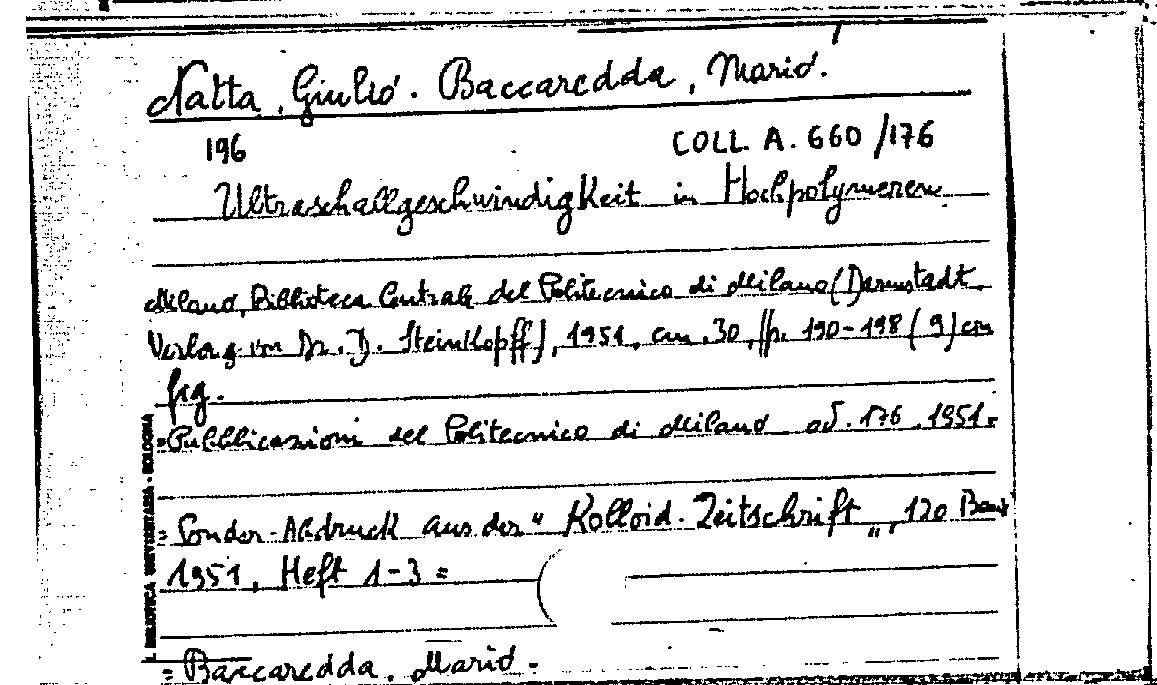 Natta, Giulio. Baccaredda, Mario.
196
COLL. A. 660/176
Ultraschallgeschwindigkeit in Hochpolymeren
Milano, Biblioteca Centrale del Politecnico di Milano (Darmstadt
Verlag von Dr. D. Steinkopff), 1951, cm. 30, pp. 190-198 (9) con
fig.
=Pubblicazioni del Politecnico di Milano ad. 176. 1951=
= Sonder-Abdruck aus der "Kolloid-Zeitschrift", 120 Band
1951, Heft 1-3=
= Baccaredda, Mario. =
BIBLIOTECA UNIVERSITARIA - BOLOGNA